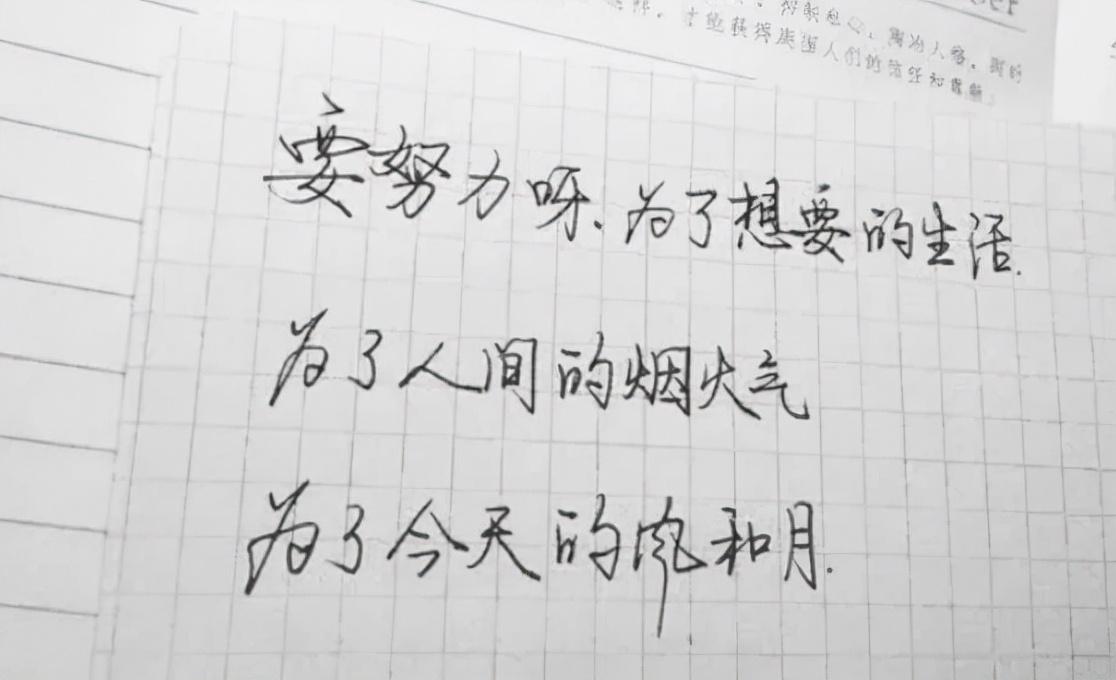 人们的信任和
要努力呀、为了想要的生活.
为了人间的烟火气
为了今天的风和月.